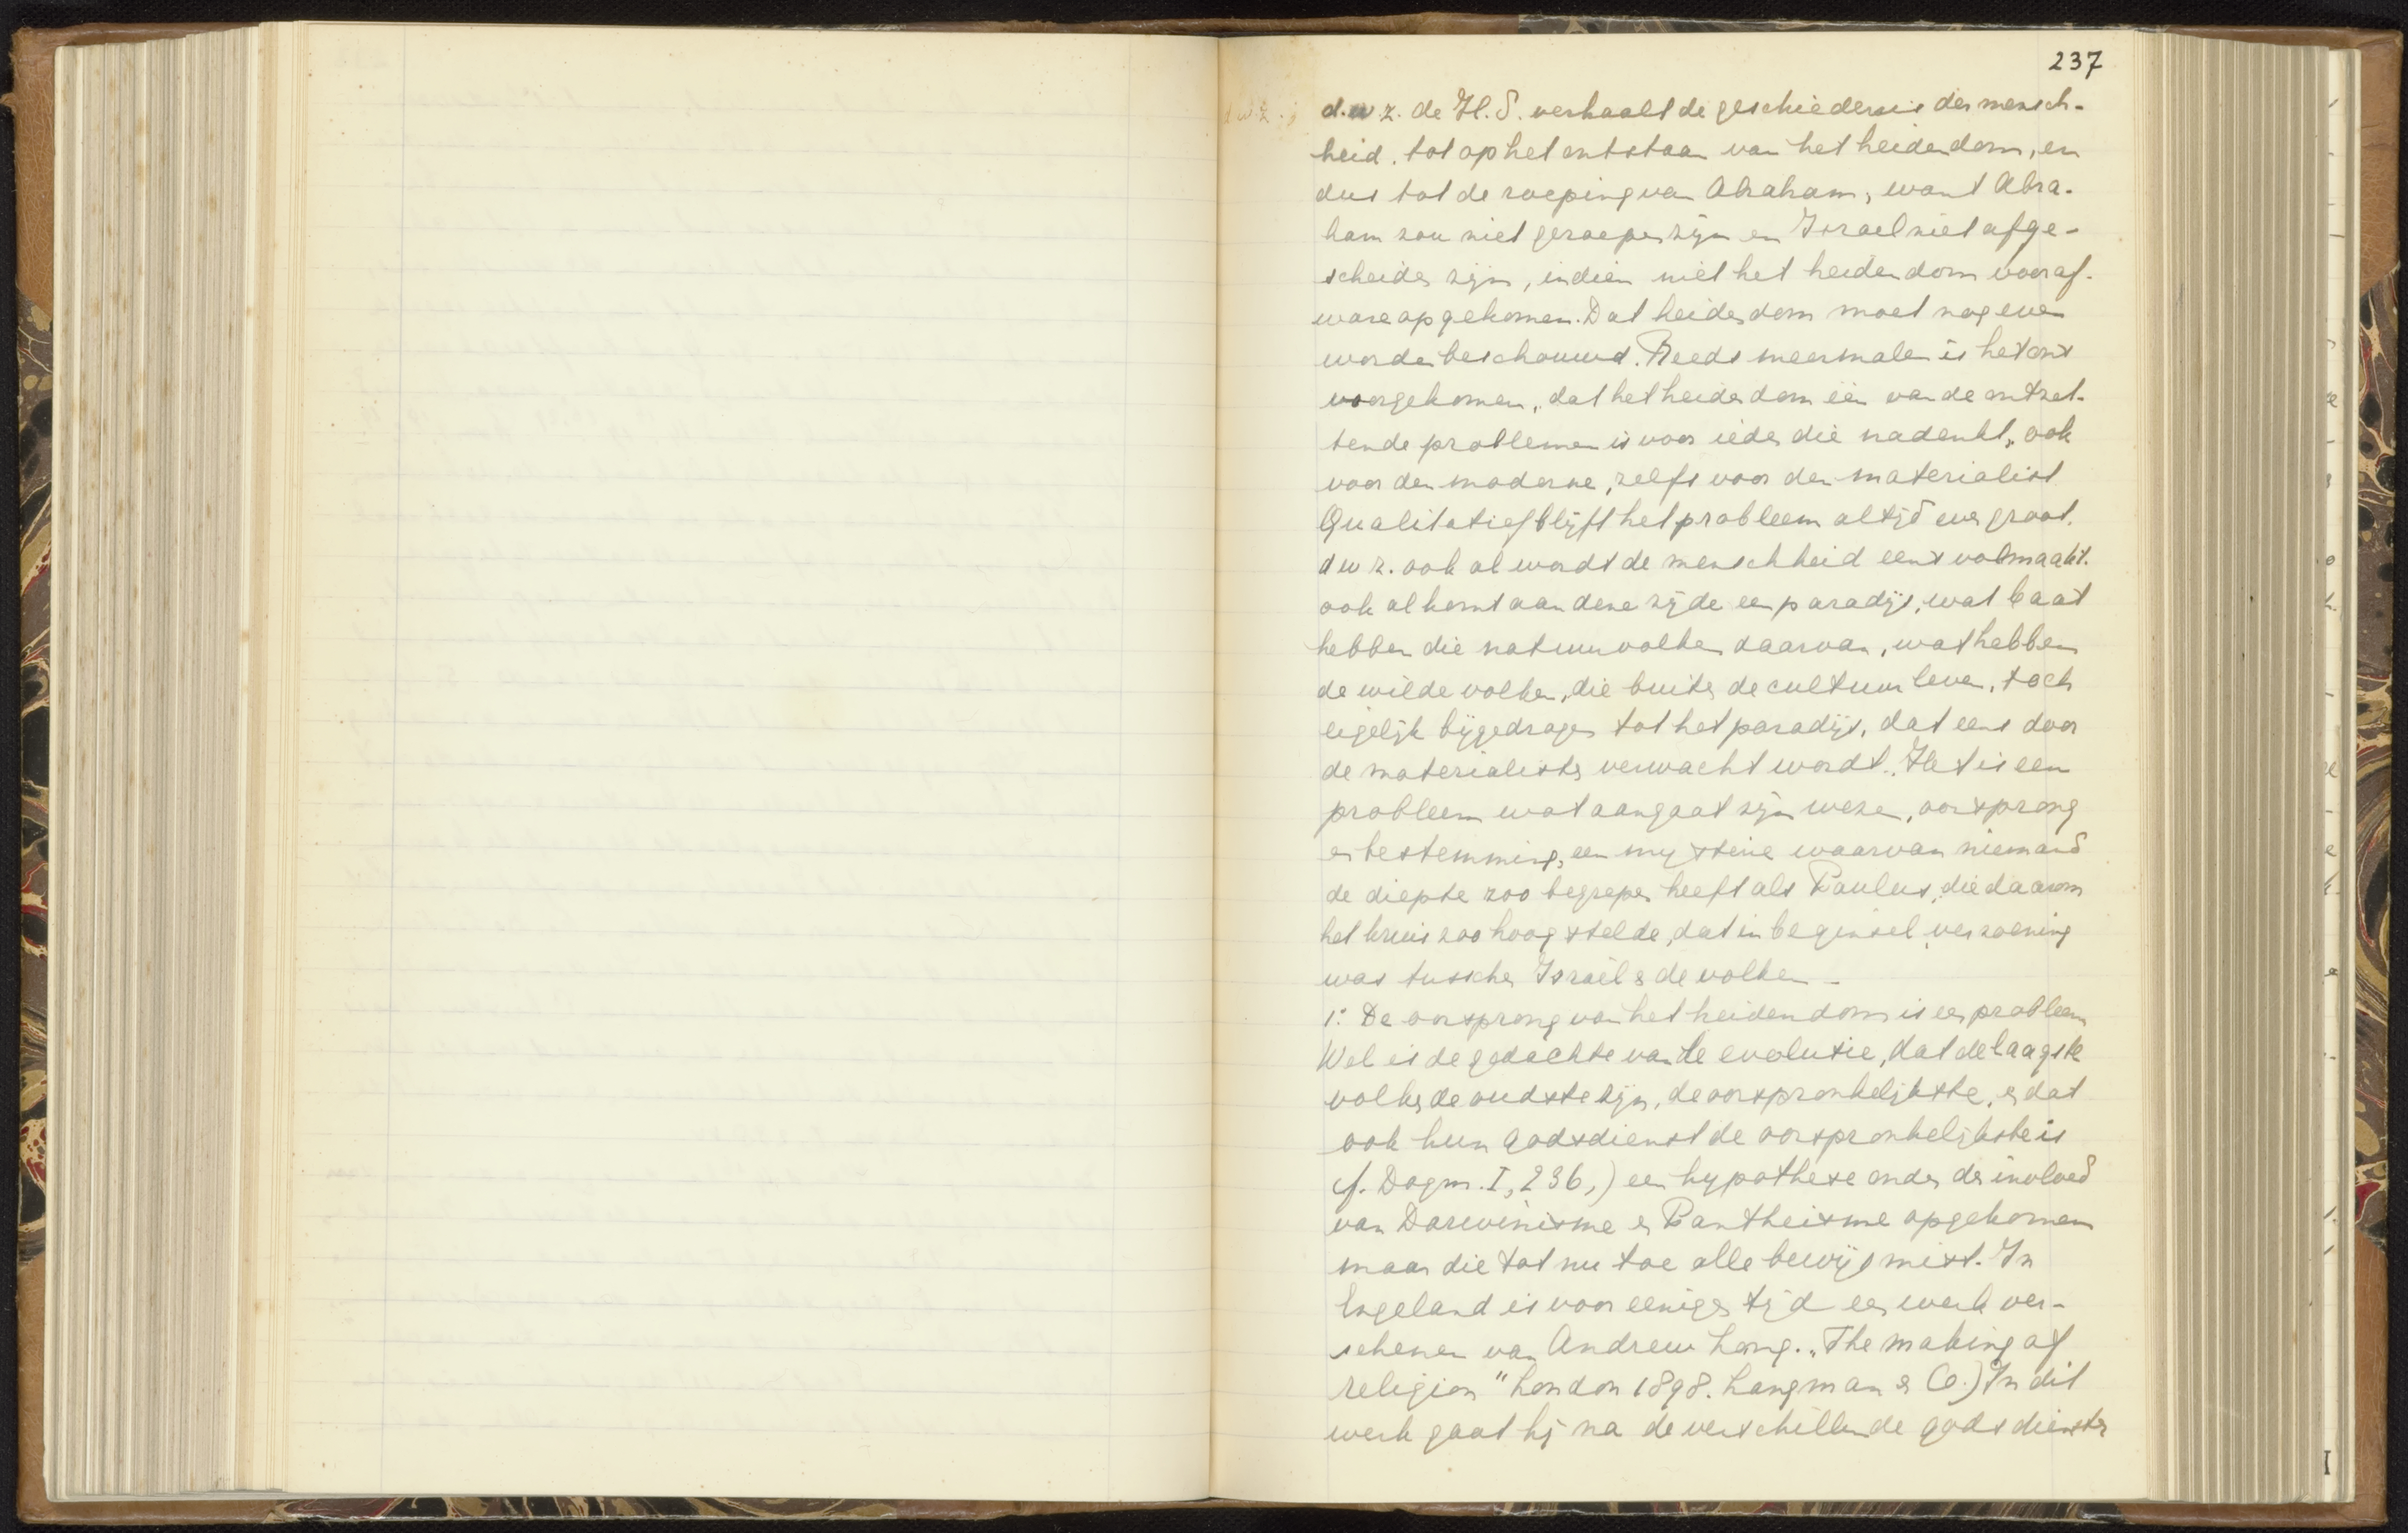 237
d.w.z. de H.S. verhaalt de geschiedenis der mensch-
heid, tot op het ontstaan van het heidendom, en
dus tot de roeping van Abraham, want Abra-
ham zou niet geroepen zijn en Israel niet afge-
scheiden zijn, indien niet het heidendom vooraf
ware opgekomen. Dat heidendom moet nog even
worden beschouwd. Reeds meermalen is het ons
voorgekomen, dat het heidendom één van de ontzet-
tende problemen is voor ieder die nadenkt, ook
voor den moderne, zelfs voor den materialist
Qualitatief blijft het probleem altijd even groot.
d w z. ook al wordt de menschheid eens volmaakt.
ook al komt aan dene zijde een paradijs, wat baat
hebben die natuurvolken daarvan, wat hebben
de wilde volken, die buiten de cultuur leven, toch
eigelijk bijgedragen tot het paradijs, dat eens door
de materialisten verwacht wordt. Het is een
probleem wat aangaat zijn wezen, oorsprong
en bestemming, een mysterie waarvan niemand
de diepte zoo begrepen heeft als Paulus, die daarom
het kruis zoo hoog stelde, dat in beginsel verzoening
was tusschen Israël & de volken -
1°. De oorsprong van het heidendom is een probleem
Wel is de gedachte van de evolutie, dat de laagste
volken de oudste zijn, de oorspronkelijkste, en dat
ook hun godsdienst de oorspronkelijkste is
cf. Dogm. I, 236,) een hypothese onder de invloed
van Darwinisme en Pantheisme opgekomen
maar die tot nu toe alle bewijs mist. In
Engeland is voor eenigen tijd een werk ver-
schenen van Andrew Lang. "The making of
religion" London 1898. Longman & Co.) In dit
werk gaat hij na de verschillende godsdiensten